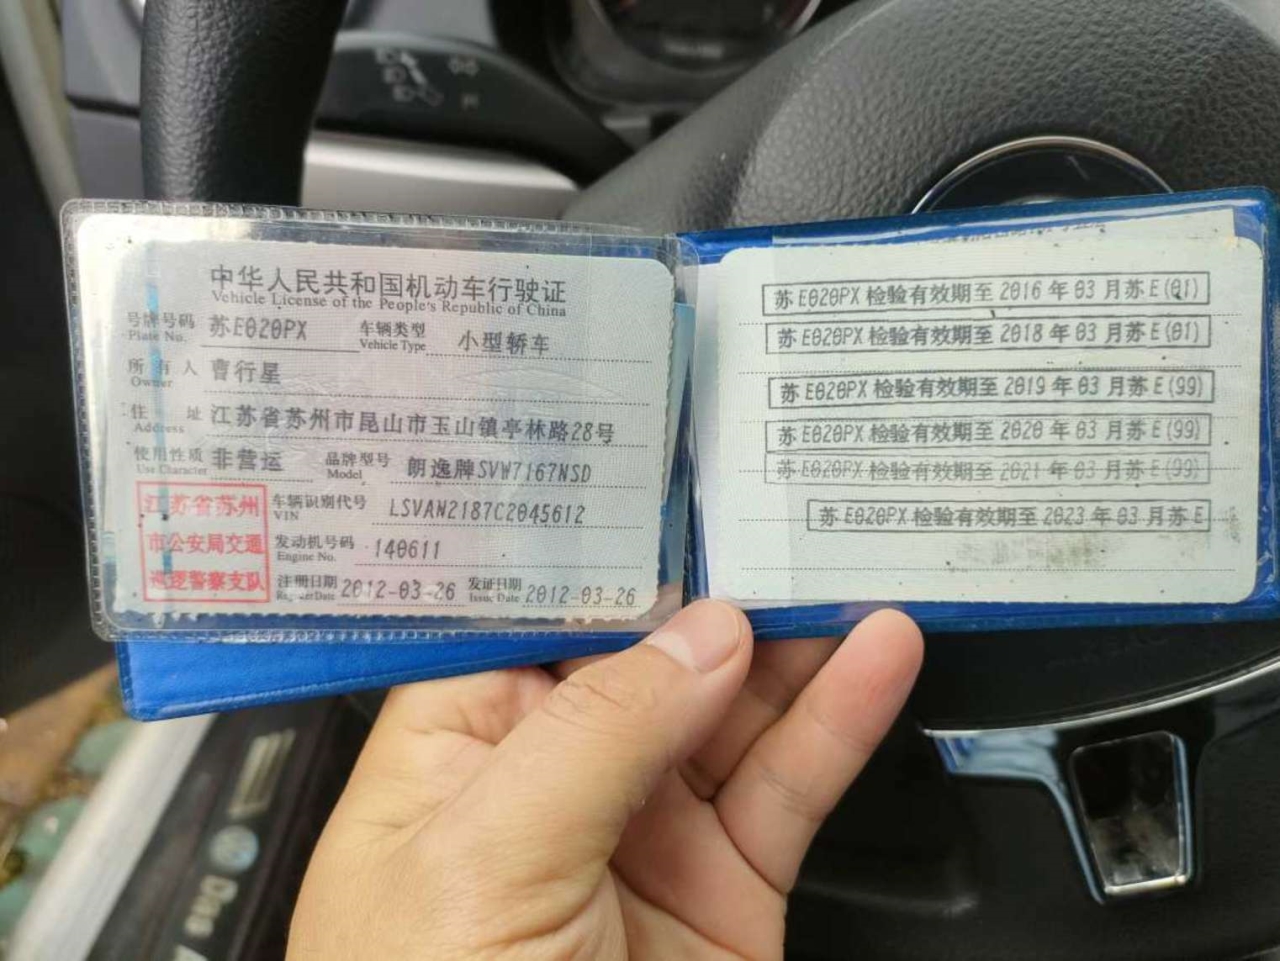 中华人民共和国机动车行驶证
Vehicle License of the People's Republic of China
号牌号码 苏E020PX 车辆类型 小型轿车
Plate No. Vehicle Type
所有人 曹行星
Owner
住址 江苏省苏州市昆山市玉山镇亭林路28号
Address
使用性质 非营运 品牌型号 朗逸牌SVW7167NSD
Use Character Model
江苏省苏州
市公安局交通
巡逻警察支队
车辆识别代号 LSVAN2187C2045612
VIN
发动机号码 140611
Engine No.
注册日期 2012-03-26 发证日期 2012-03-26
Register Date Issue Date
苏E020PX检验有效期至2016年03月苏E(01)
苏E020PX检验有效期至2018年03月苏E(01)
苏E020PX检验有效期至2019年03月苏E(99)
苏E020PX检验有效期至2020年03月苏E(99)
苏E020PX检验有效期至2021年03月苏E(99)
苏E020PX检验有效期至2023年03月苏E
Das